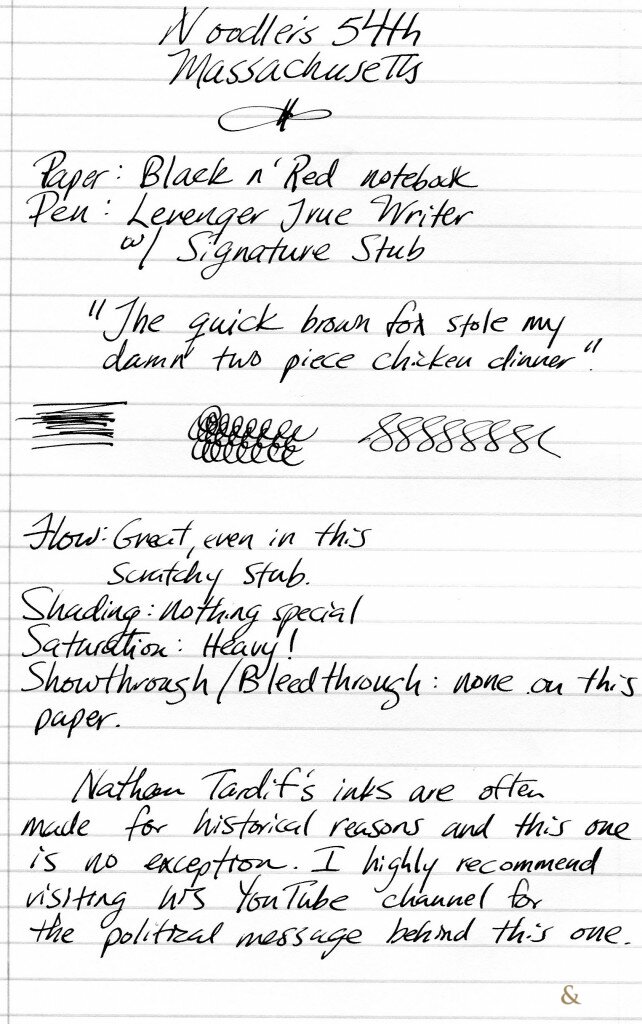 Noodler's 54th
Massachusetts
Paper: Black n' Red notebook
Pen: Levenger True Writer
w/ Signature Stub
"The quick brown fox stole my
damn two piece chicken dinner".
Flow: Great, even in this
Scratchy Stub.
Shading: nothing special
Saturation: Heavy!
Showthrough/Bleedthrough: none on this
paper.
Nathan Tardif's inks are often
made for historical reasons and this one
is no exception. I highly recommend
visiting his YouTube channel for
the political message behind this one.
&